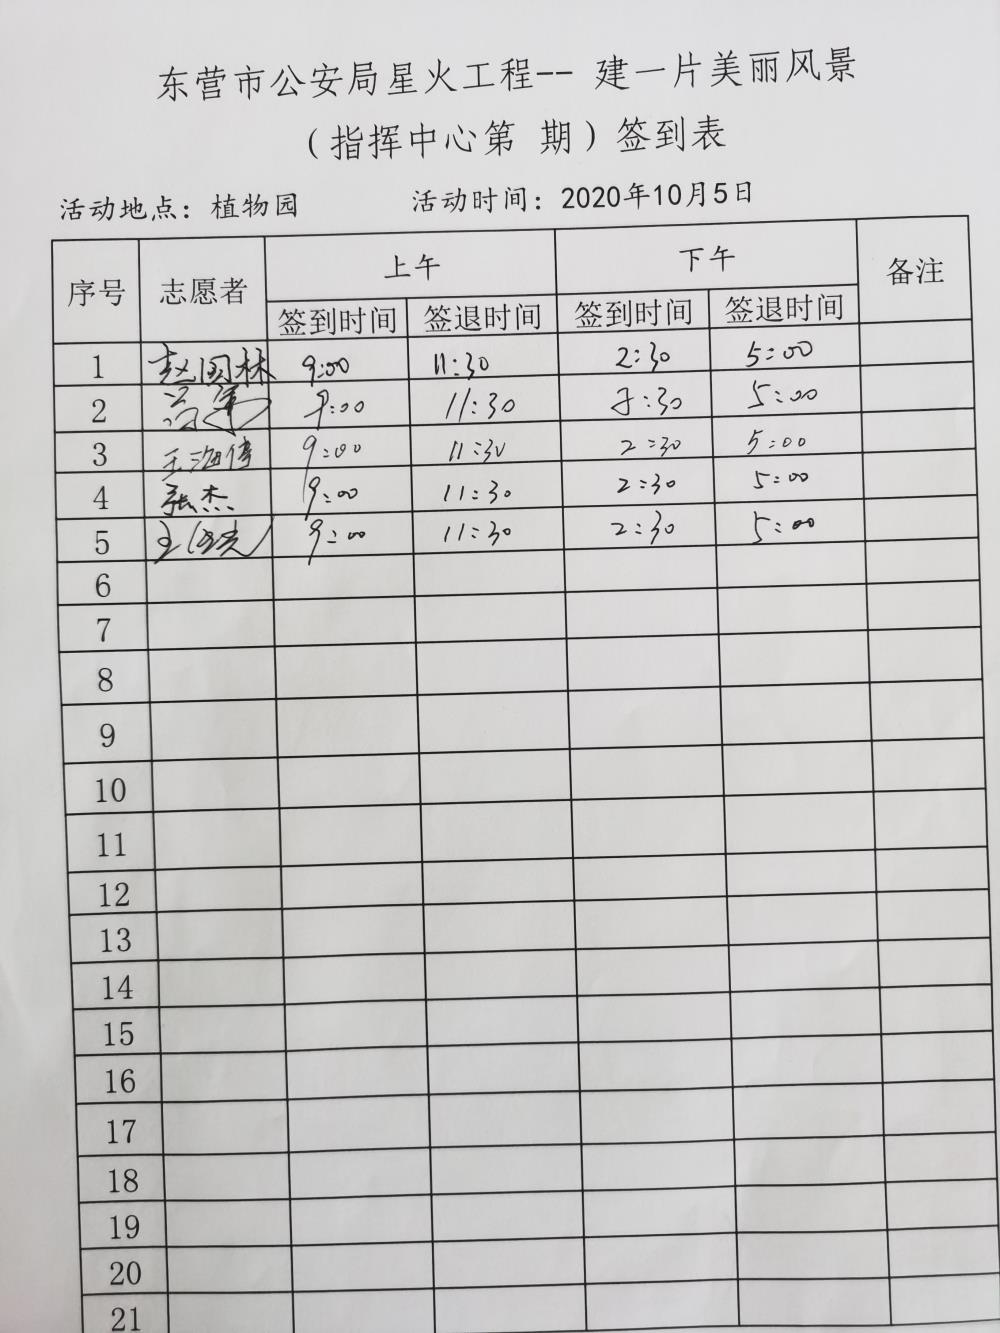 东营市公安局星火工程-- 建一片美丽风景
（指挥中心第 期）签到表
活动地点：植物园 活动时间：2020年10月5日
序号 志愿者 上午 下午 备注
签到时间 签退时间 签到时间 签退时间
1 赵国林 9:00 11:30 2:30 5:00
2 9:00 11:30 2:30 5:00
3 王海倩 9:00 11:30 2:30 5:00
4 张杰 9:00 11:30 2:30 5:00
5 王 9:00 11:30 2:30 5:00
6
7
8
9
10
11
12
13
14
15
16
17
18
19
20
21